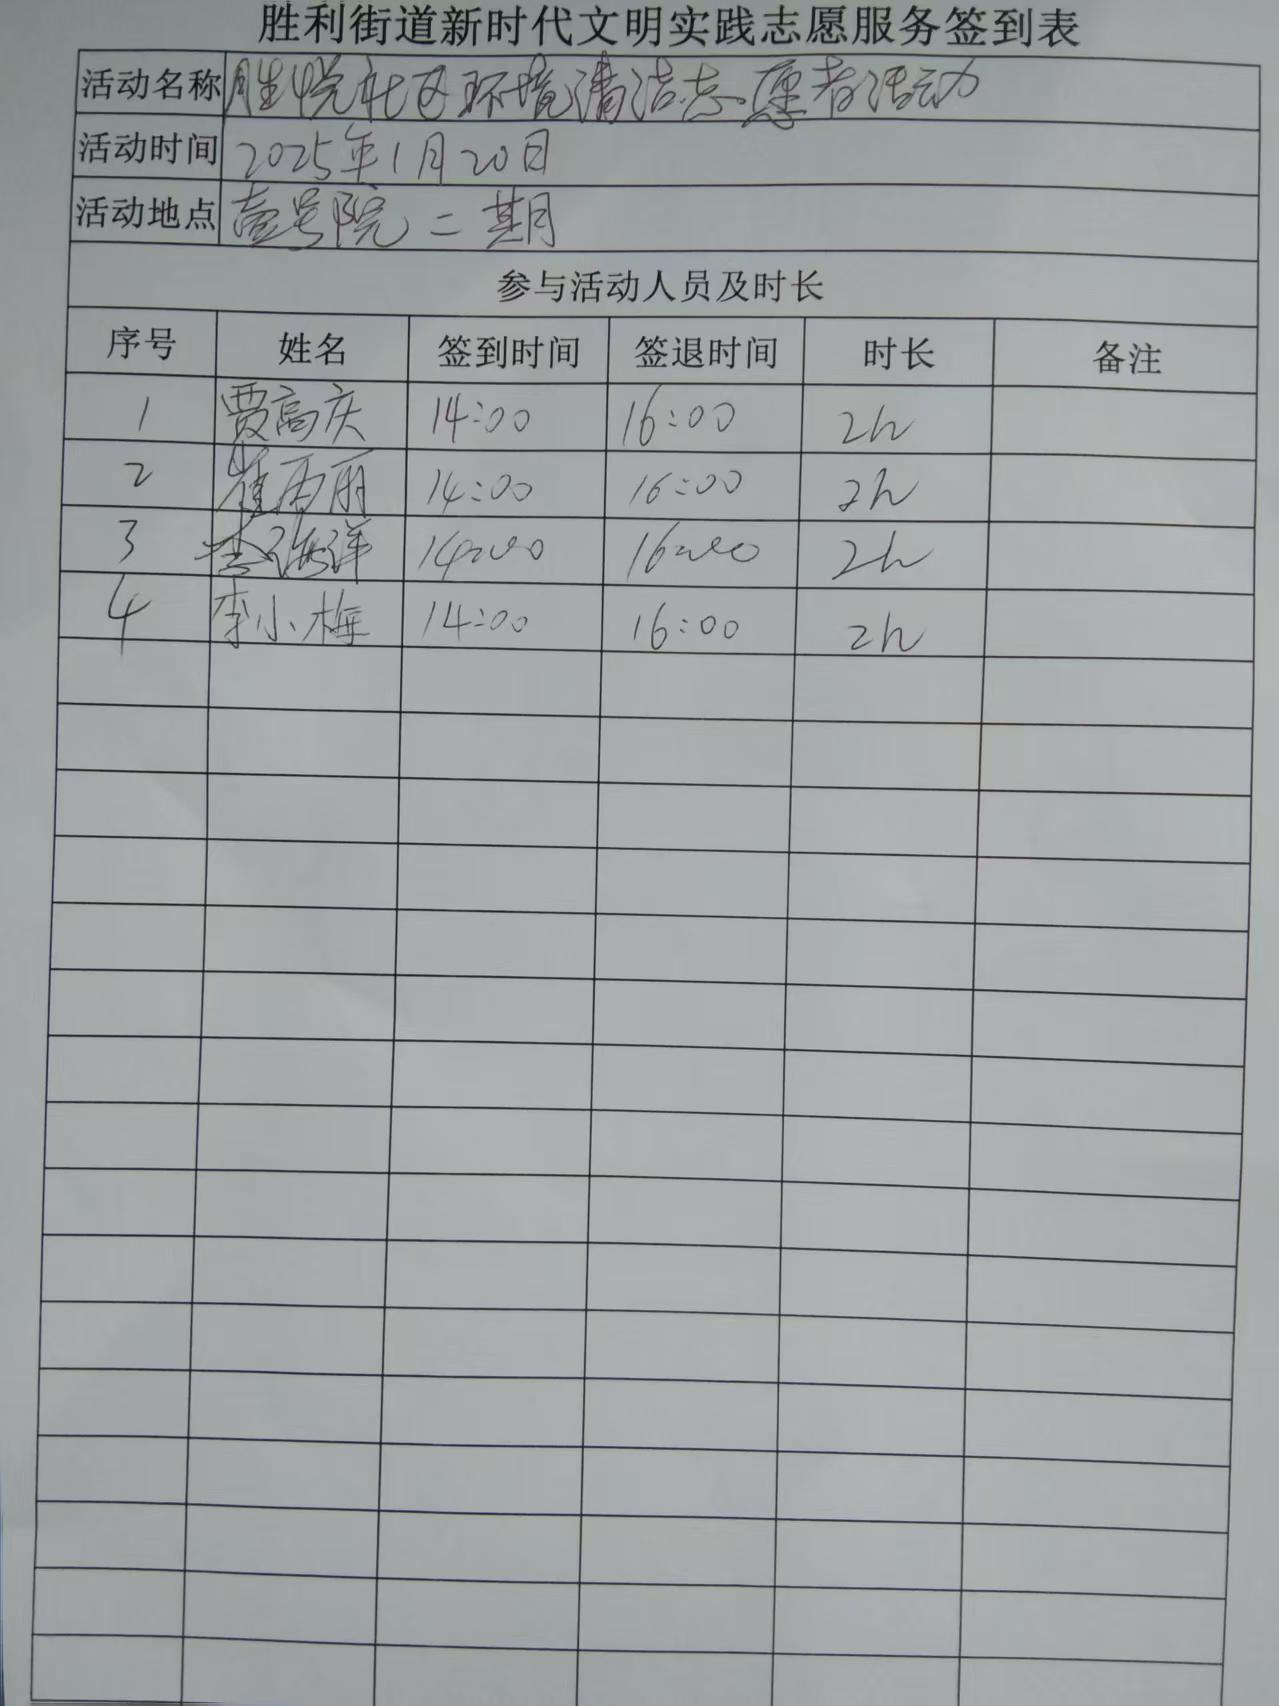 胜利街道新时代文明实践志愿服务签到表
活动名称 胜悦社区环境清洁志愿者活动
活动时间 2025年1月20日
活动地点 壹号院二期
参与活动人员及时长
序号 姓名 签到时间 签退时间 时长 备注
1 贾高庆 14:00 16:00 2h
2 崔丽 14:00 16:00 2h
3 李海洋 14:00 16:00 2h
4 李小梅 14:00 16:00 2h